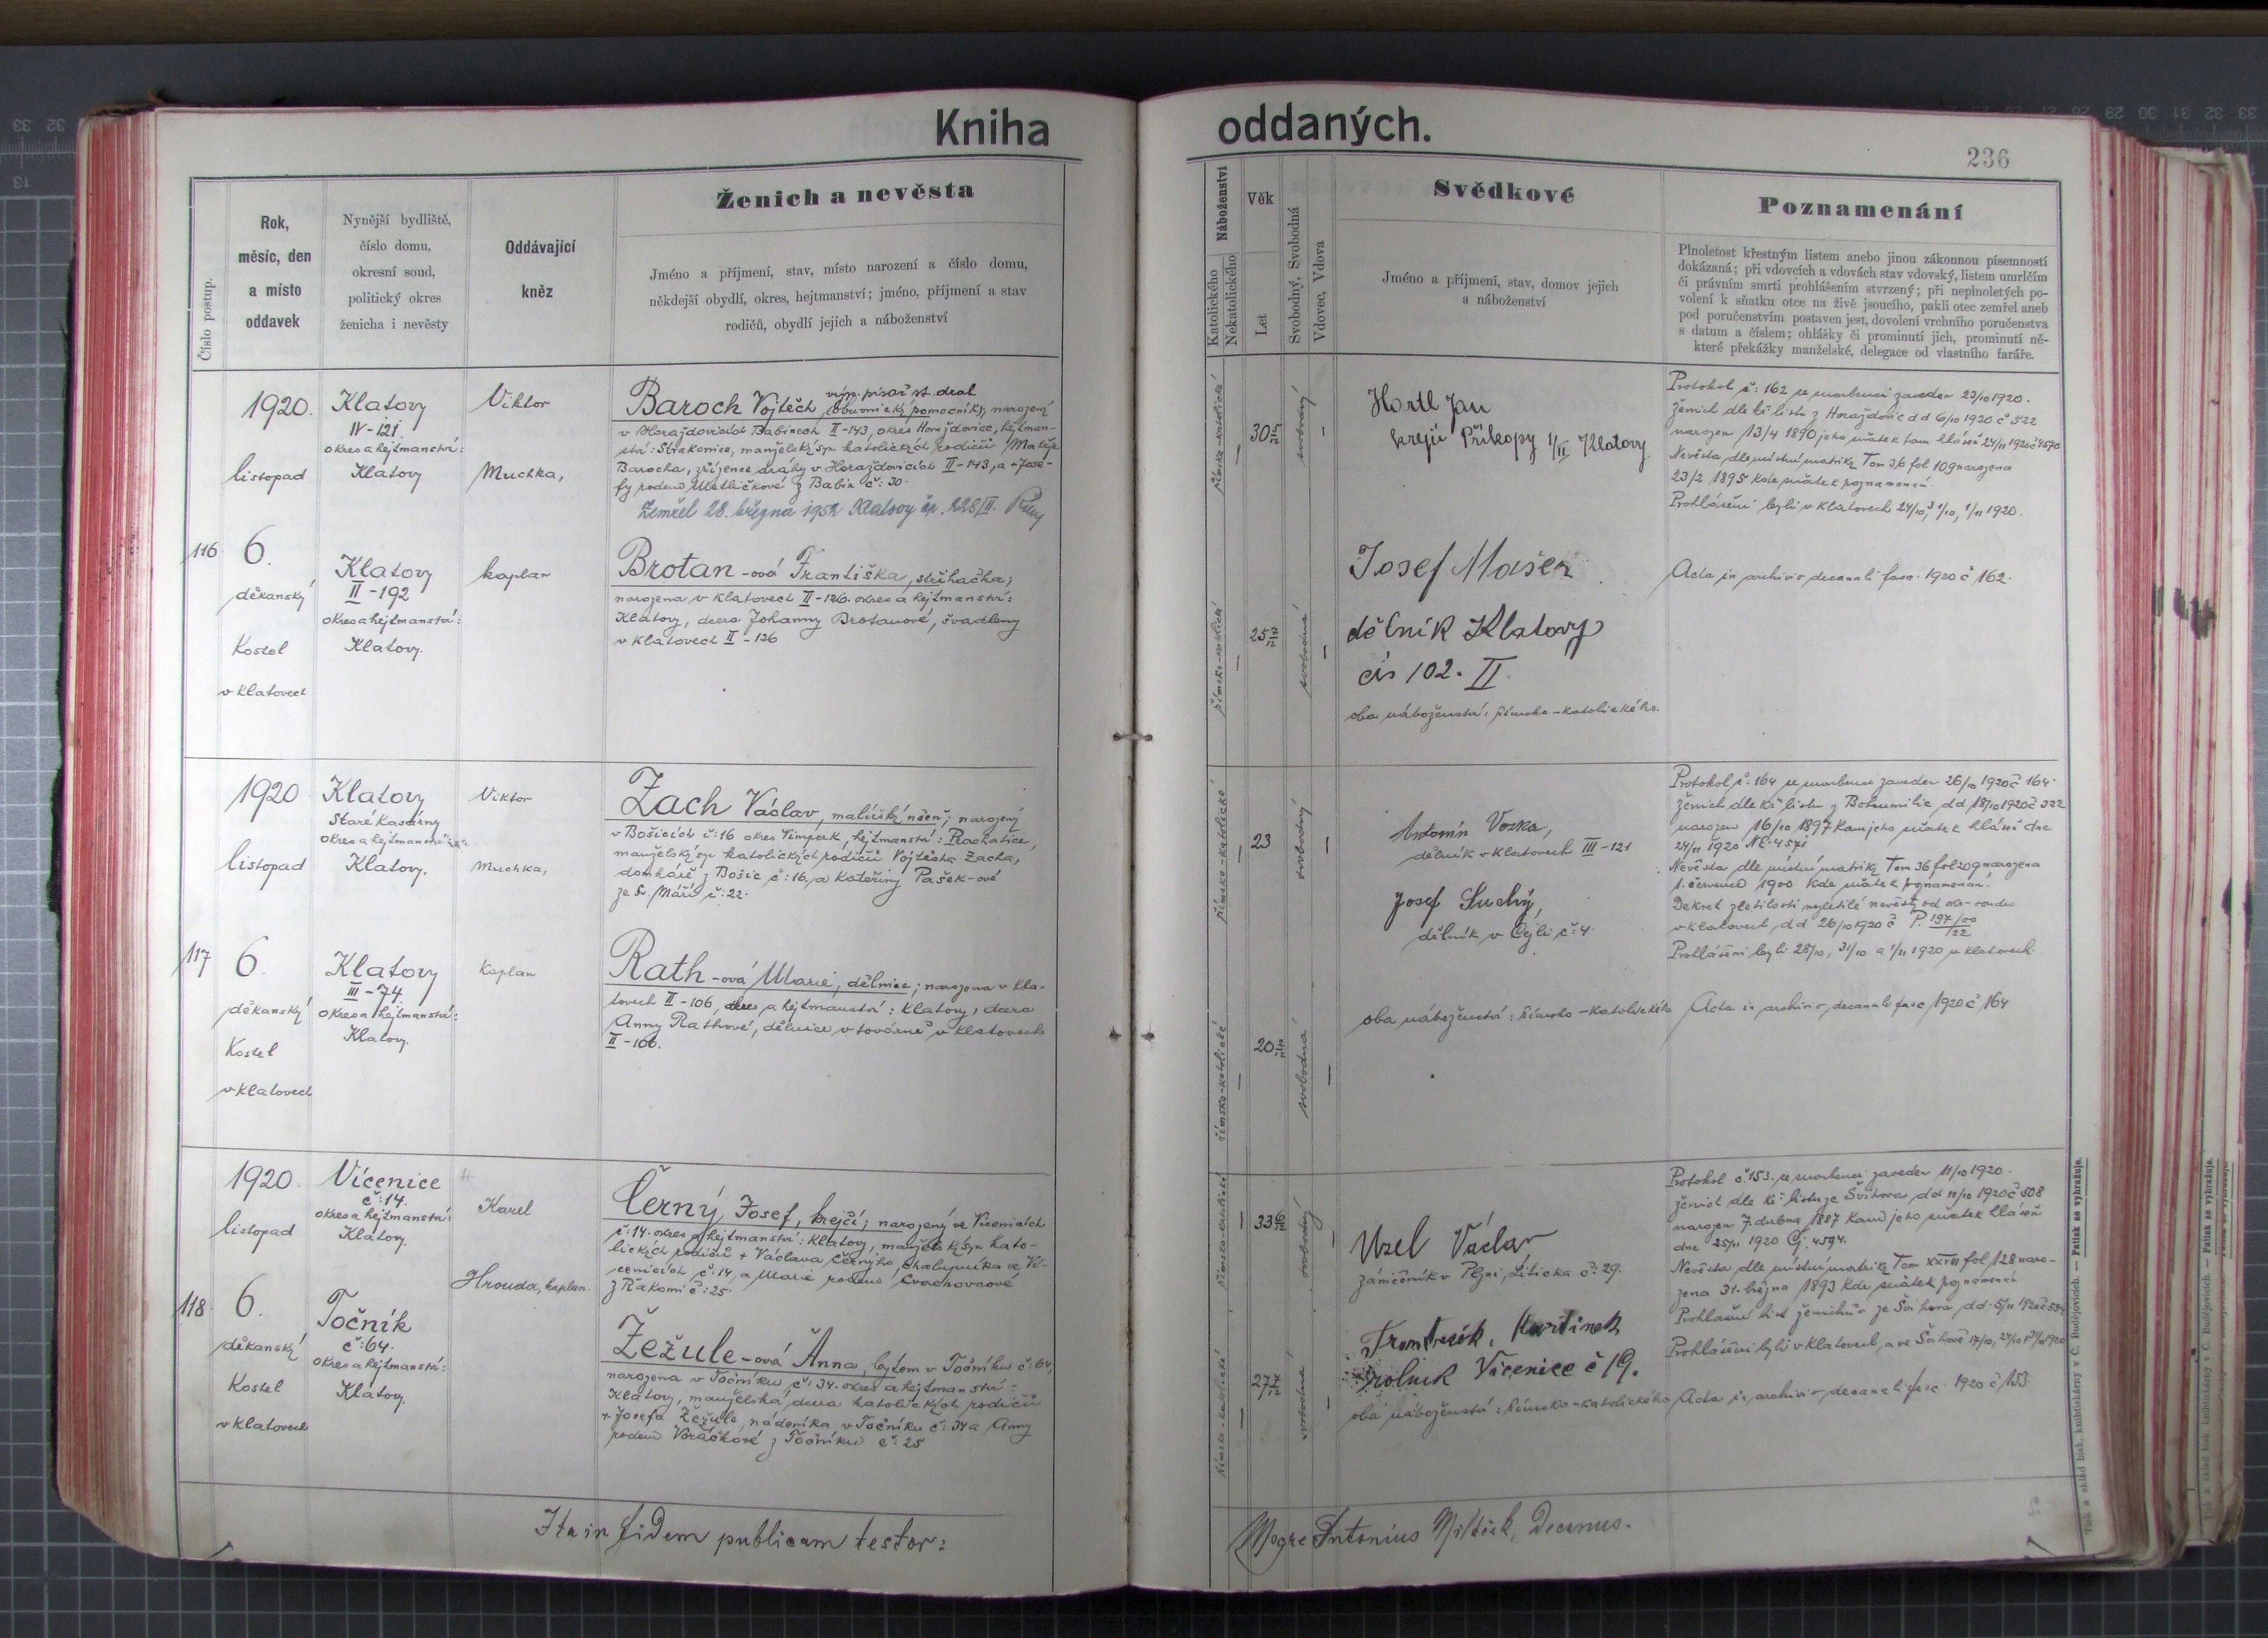 Kniha oddaných.
236
Číslo postup.
Rok,
měsíc, den
a místo
oddavek
Nynější bydliště,
číslo domu,
okresní soud,
politický okres
ženicha i nevěsty
Oddávající
kněz
Ženich a nevěsta
Jméno a příjmení, stav, místo narození a číslo domu,
někdejší obydlí, okres, hejtmanství; jméno, příjmení a stav
rodičů, obydlí jejich a náboženství
Náboženství
Katolického
Nekatolického
Věk
Let
Svobodný, Svobodná
Vdovec, Vdova
Svědkové
Jméno a příjmení, stav, domov jejich
a náboženství
Poznamenání
Plnoletost křestným listem anebo jinou zákonnou písemností
dokázaná; při vdovcích a vdovách stav vdovský, listem umrlčím
či právním smrti prohlášením stvrzený; při neplnoletých po-
volení k sňatku otce na živě jsoucího, pakli otec zemřel aneb
pod poručenstvím postaven jest, dovolení vrchního poručenstva
s datum a číslem; ohlášky či prominutí jich, prominutí ně-
které překážky manželské, delegace od vlastního faráře.
116
1920.
listopad
6.
děkanský
Kostel
v Klatovech
Klatovy
IV-121.
okres a hejtmanství:
Klatovy
Klatovy
II-192
okres a hejtmanství:
Klatovy.
Viktor
Muchka,
kaplan
výp. písař st. drah
Baroch Vojtěch, (obuvnický pomocník), narozený
v Horažďovicích Babinech II-143, okres Horažďovice, hejtman-
ství: Strakonice, manželský syn katolických rodičů Matěje
Barocha, zřízence dráhy v Horažďovicích II-143, a +Jose-
fy rozené Metličkové z Babin č: 30.
Zemřel 28. března 1952 Klatovy čp. 228/III.
Brotan-ová Františka, střihačka;
narozena v Klatovech II-126. okres a hejtmanství:
Klatovy, dcera Johanny Brotanové, švadleny
v Klatovech II-126
římsko-katolické
30
svobodný
římsko-katolické
25
svobodná
Hartl Jan
krejčí Příkopy 1/III Klatovy
Josef Mašek
dělník Klatovy
čís 102. II
oba náboženství: římsko-katolického.
Protokol č: 162 se snoubenci zaveden 23/10 1920.
Ženich dle kř listu z Horažďovic dd 6/10 1920 č 522
narozen 13/4 1890 jeho sňatek tam hlášen 24/11 1920 č 4570
Nevěsta, dle místní matriky Tom 36 fol 109 narozena
23/2 1895 kde sňatek poznamenán.
Prohlášeni byli v Klatovech 24/10, 31/10, 1/11 1920.
Acta in archivio decanali fasc. 1920 č 162.
117
1920
listopad
6.
děkanský
Kostel
v Klatovech
Klatovy
Staré kasárny
okres a hejtmanství:
Klatovy.
Klatovy
III-74.
okres a hejtmanství:
Klatovy.
Viktor
Muchka,
Kaplan
Zach Václav, malířský učeň; narozený
v Bošicích č:16 okres Vimperk, hejtmanství: Prachatice,
manželský syn katolických rodičů Vojtěcha Zacha,
domkáře z Bošic č:16, a Kateřiny Pašek-ové
ze Sv Máří č:22.
Rath-ová Marie, dělnice; narozena v Kla-
tovech II-106, okres a hejtmanství: Klatovy, dcera
Anny Rathové, dělnice v továrně v Klatovech
II-106.
římsko-katolické
23
svobodný
římsko-katolické
20
svobodná
Antonín Voska,
dělník v Klatovech III-121
Josef Suchý,
dělník v Čejli č:4
oba náboženství: římsko-katolického
Protokol č:164 se snoubenci zaveden 26/10 1920 č 164.
Ženich dle kř listu z Bohumilic, dd 18/10 1920 č 322
narozen 16/10 1897 kam jeho sňatek hlášen dne
24/11 1920 NE:4571
Nevěsta dle místní matriky Tom 36 fol 209 narozena
1. července 1900 kde sňatek poznamenán.
Dekret zletilosti nezletilé nevěsty od okr-soudu
v Klatovech, dd 26/10 1920 č P. 197/00/22
Prohlášeni byli 28/10, 31/10 a 1/11 1920 v Klatovech.
Acta in archivio decanali fasc 1920 č 164
118
1920.
listopad
6.
děkanský
Kostel
v Klatovech
Vícenice
č:14.
okres a hejtmanství:
Klatovy.
Točník
č:64.
okres a hejtmanství:
Klatovy.
Karel
Hrouda, kaplan.
Černý Josef, krejčí; narozený ve Vícenicích
č:14. okres a hejtmanství: Klatovy, manželský syn kato-
lických rodičů + Václava Černýho, chalupníka ve Ví-
cenicích č:14, a Marie rozené Cvachovcové
z Řakomi č:25.
Žežule-ová Anna, bytem v Točníku č:64,
narozena v Točníku, č: 34. okres a hejtmanství:
Klatovy, manželská dcera katolických rodičů
+ Josefa Žežule, nádeníka v Točníku č: 34 a Anny
rozené Voráčkové z Točníku č: 25
římsko-katolické
33
svobodný
římsko-katolické
27
svobodná
Uzel Václav
zámečník v Plzni, Liticka č: 29.
František Martínek
rolník Vícenice č 19.
oba náboženství: římsko-katolického
Protokol č.153. se snoubenci zaveden 11/10 1920.
Ženich dle kř listu ze Švihova, dd 11/10 1920 č 508
narozen 7. dubna 1887 kam jeho sňatek hlášen
dne 25/11 1920 Čj: 4594.
Nevěsta, dle místní matriky Tom XXVII fol 128 naro-
zena 31. března 1893 kde sňatek poznamenán
Prohlašní list ženichův ze Švihova dd. 5/11 1920
Prohlášeni byli v Klatovech, a ve Švihově 17/10, 24/10, 31/10 1920
Acta in archivio decanali fasc. 1920 č 153.
Ita in fidem publicam testor:
Antonius Miltček, Decanus.
Tisk a sklad bisk. knihtiskárny v Č. Budějovicích. — Patisk se vyhražuje.